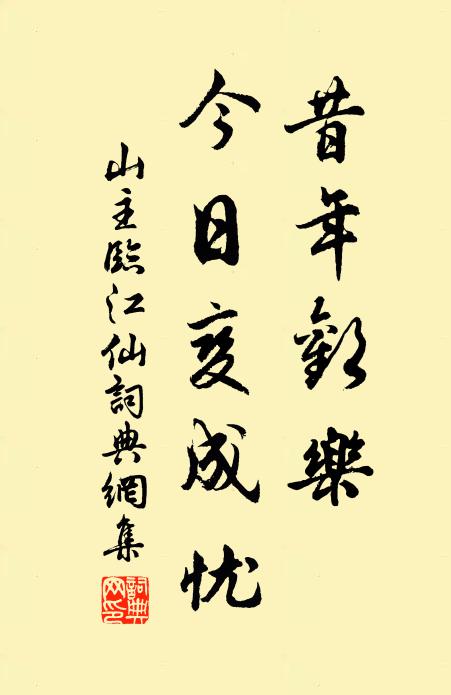 昔年歡樂
今日變成忧
山主臨江仙詞典網集
詞典
网印